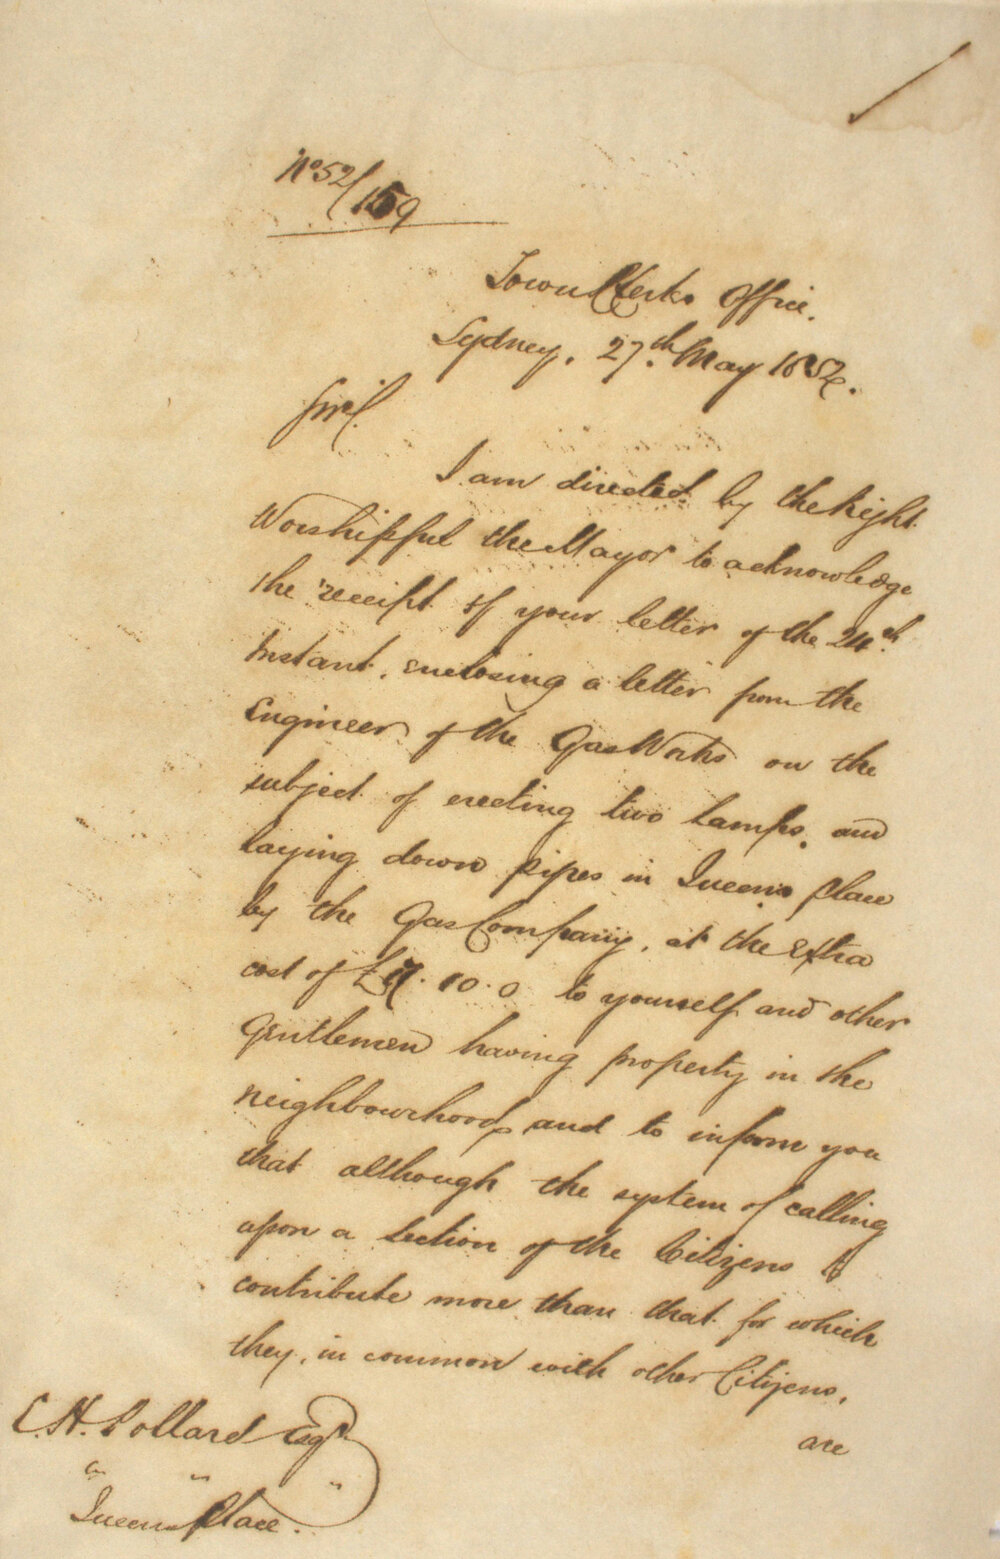 No 52/159
Town Clerks Office.
Sydney, 27th May 1852.
Sir,
I am directed by the Right
Worshipful the Mayor to acknowledge
the receipt of your letter of the 24th
Instant, enclosing a letter from the
Engineer of the Gas Works on the
subject of erecting two Lamps, and
laying down pipes in Queens place
by the Gas Company, at the extra
cost of £ 10. 0 to yourself and other
Gentlemen having property in the
neighbourhood, and to inform you
that although the system of calling
upon a section of the Citizens to
contribute more than that for which
they, in common with other Citizens,
are
C. H. Pollard Esqr
" " "
Queens place.